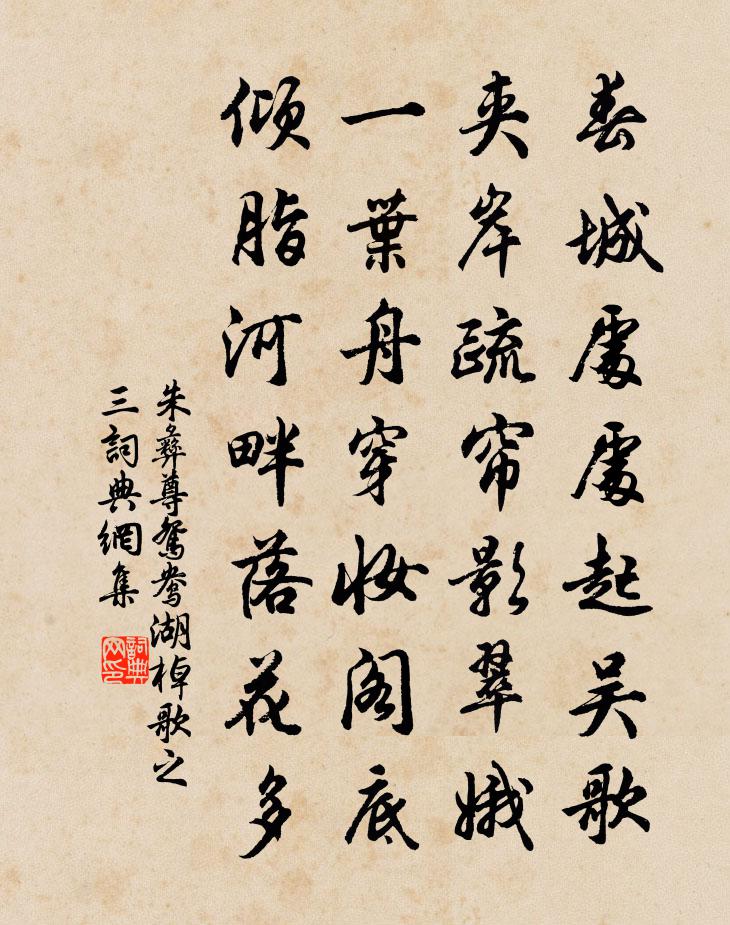 春城處處起吴歌
夾岸疏帘影翠娥
一葉舟穿妝閣底
傾脂河畔落花多
朱彝尊鴛鴦湖棹歌之
三詞典網集
詞典
网印